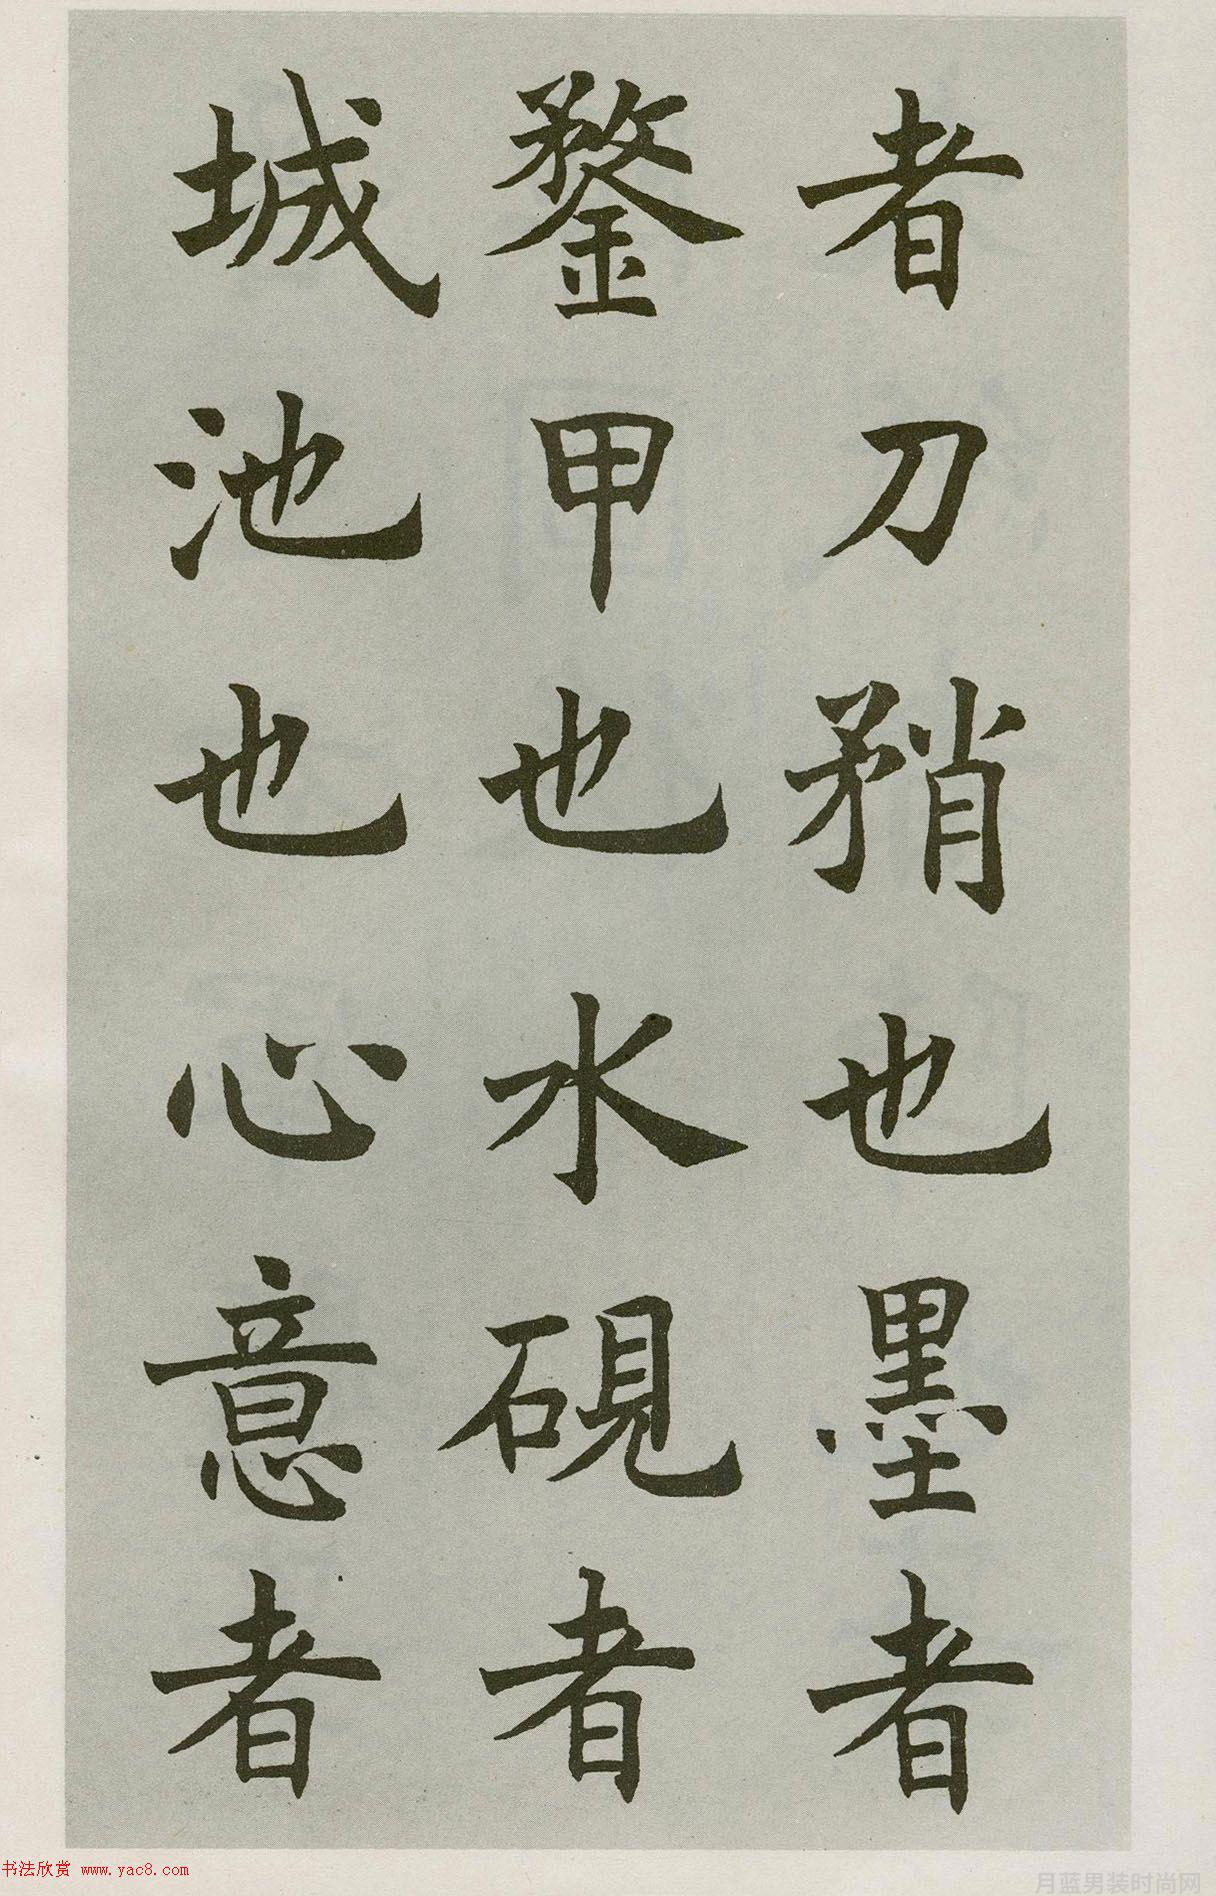 者刀矟也墨者
鍪甲也水硯者
城池也心意者
书法欣赏 www.yac8.com
月蓝男装时尚网